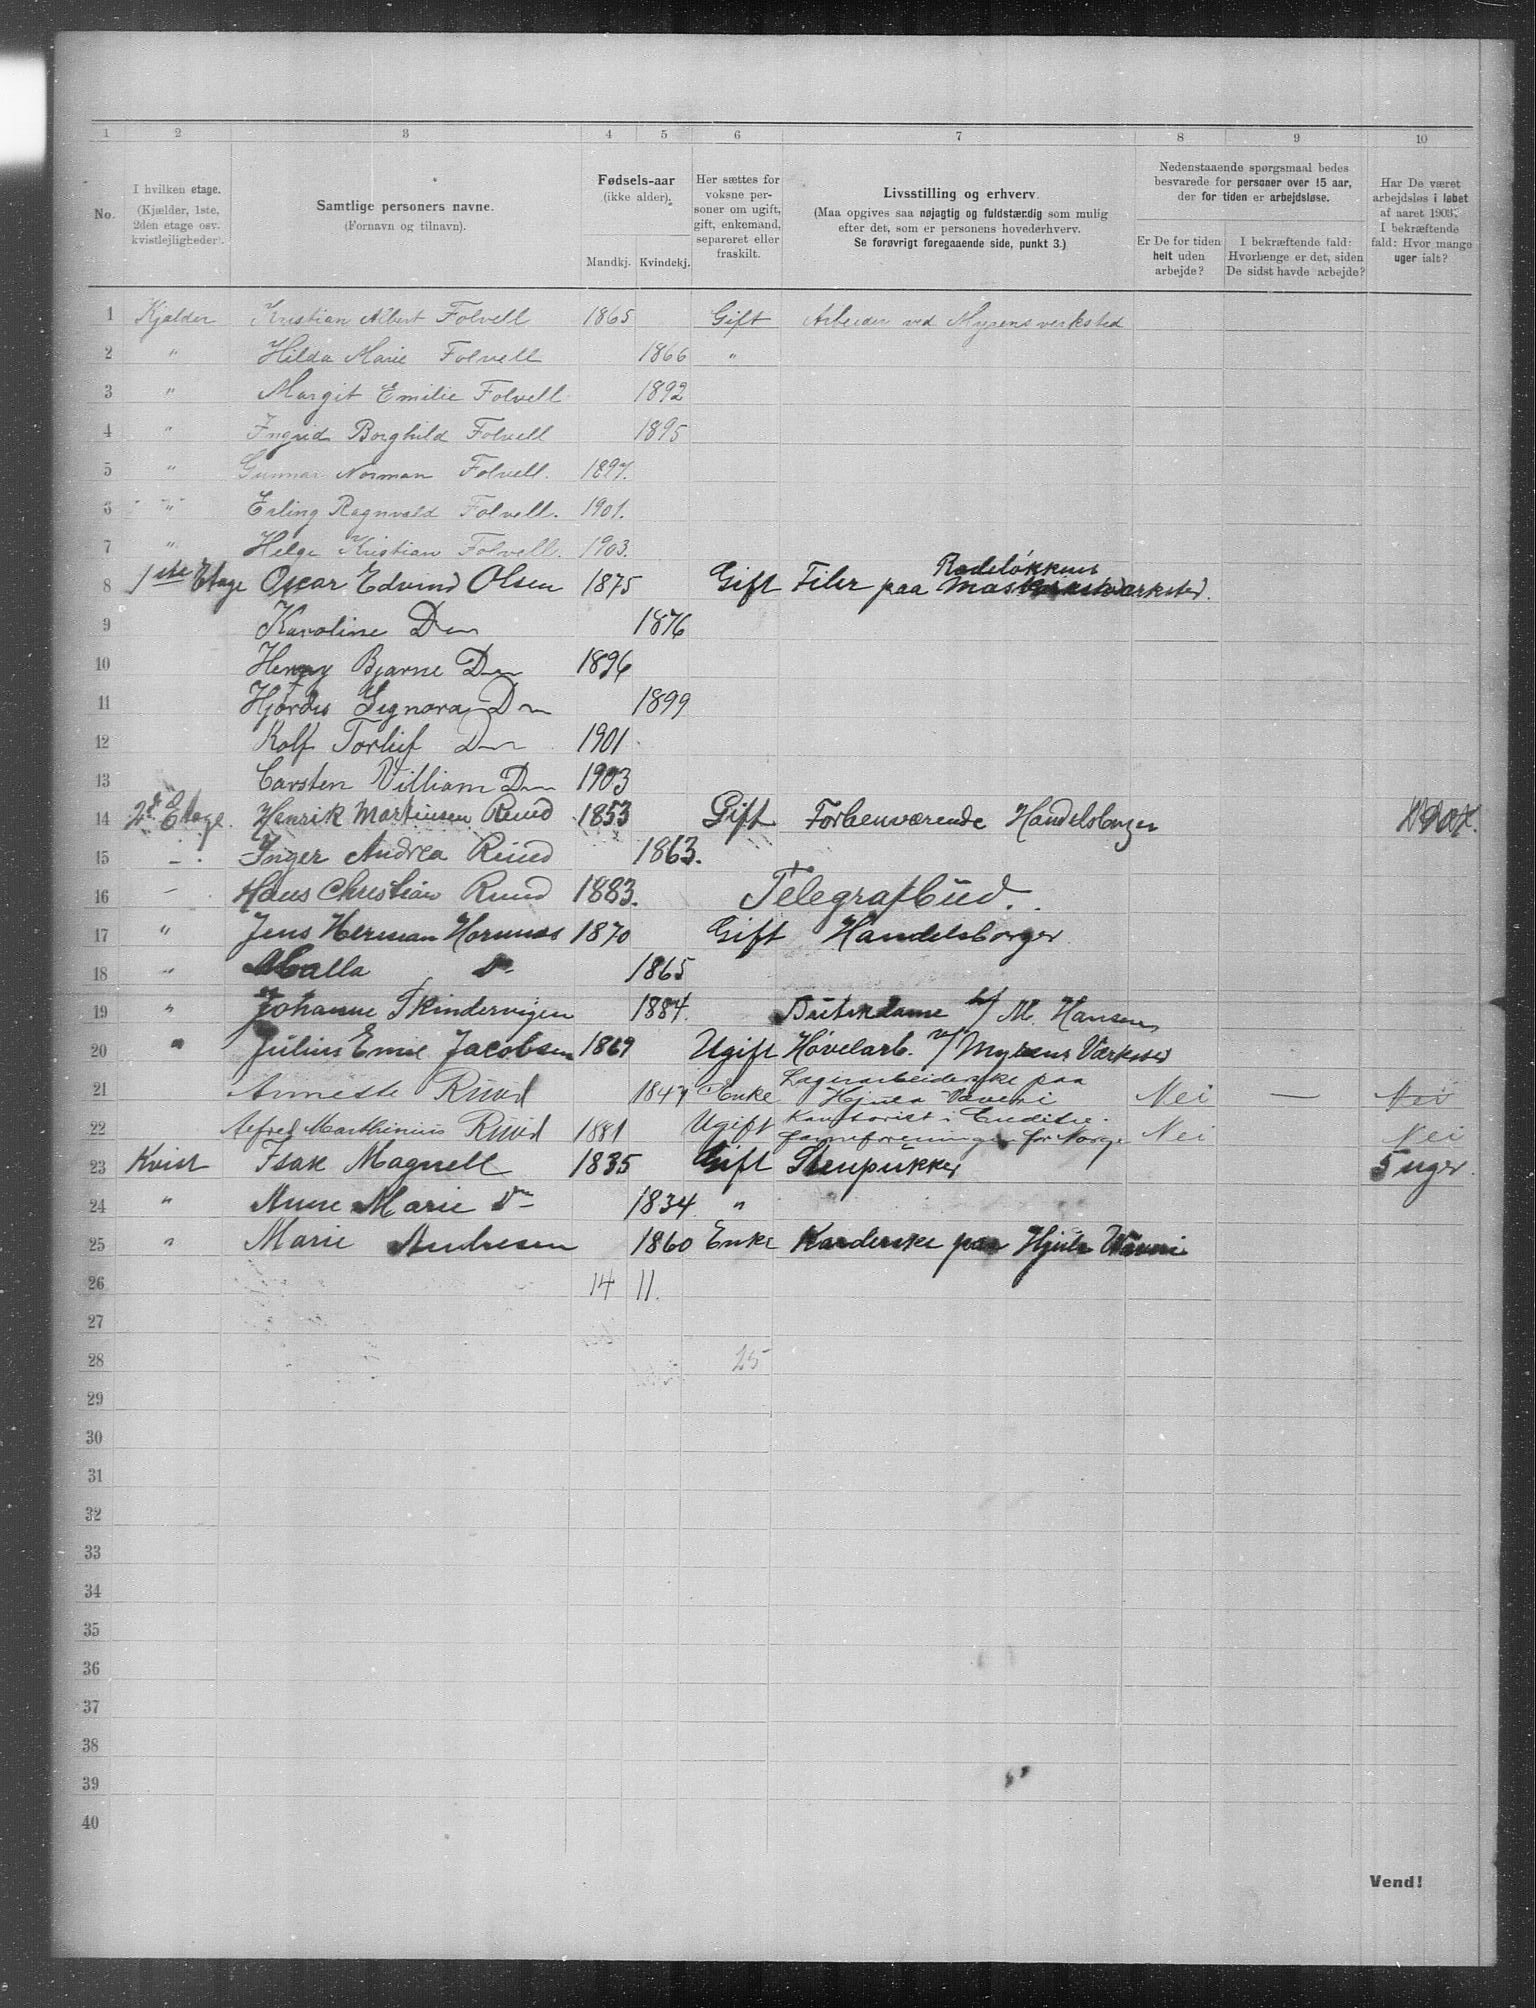 1 2 3 4 5 6 7 8 9 10
No.
I hvilken etage.
(Kjælder, 1ste,
2den etage osv.
kvistlejligheder).
Samtlige personers navne.
(Fornavn og tilnavn).
Fødsels-aar
(ikke alder).
Mandkj. Kvindekj.
Her sættes for
voksne per-
soner om ugift,
gift, enkemand,
separeret eller
fraskilt.
Livsstilling og erhverv.
(Maa opgives saa nøjagtig og fuldstændig som mulig
efter det, som er personens hovederhverv.
Se forøvrigt foregaaende side, punkt 3.)
Nedenstaaende spørgsmaal bedes
besvarede for personer over 15 aar,
der for tiden er arbejdsløse.
Er De for tiden
helt uden
arbejde?
I bekræftende fald:
Hvorlænge er det, siden
De sidst havde arbejde?
Har De været
arbejdsløs i løbet
af aaret 1903?
I bekræftende
fald: Hvor mange
uger ialt?
1 Kjælder Kristian Albert Folvell 1865 Gift Arbeider ved Myrens verksted
2 " Hilda Marie Folvell 1866 "
3 " Margit Emilie Folvell 1892
4 " Ingrid Borghild Folvell 1895
5 " Gunnar Norman Folvell. 1897.
6 " Erling Ragnvald Folvell. 1901.
7 " Helge Kristian Folvell. 1903.
Rodeløkkens
8 1ste Etage Oscar Edvind Olsen 1875 Gift Filer paa
9 Karoline Do 1876
10 Henry Bjarne Do 1896
11 Hjørdis Signora Do 1899
12 Rolf Torlief Do 1901
13 Carsten Villiam Do 1903
14 2d Etage. Henrik Martinsen Ruud 1853 Gift Forhenværende Handelsborger
15 -. Inger Andrea Ruud 1863.
16 - Hans Christian Ruud 1883. Telegrafbud.
17 " Jens Herman 1870 Gift Handelsborger
18 " Do 1865
19 " Johanne Skindervigen 1884. Butikdame h/ M. Hansen
20 " Julius Emil Jacobsen 1869 Ugift Høvelarb. v/ Myrens Værksted
21 Anneste Ruud Enke Lagerarbeiderske paa
Hjula Væveri Nei — Nei
22 Alfred Marthinius Ruud 1881 Ugift Kontorist i
for Norge Nei Nei
23 Kvist Isak Magnell 1835 Gift Stenpukker 5 uger.
24 " Anne Marie Do 1834 "
25 " Marie Andresen 1860 Enke Karderske paa Hjula Væveri
26 14 11.
27
28 25
29
30
31
32
33
34
35
36
37
38
39
40
Vend!